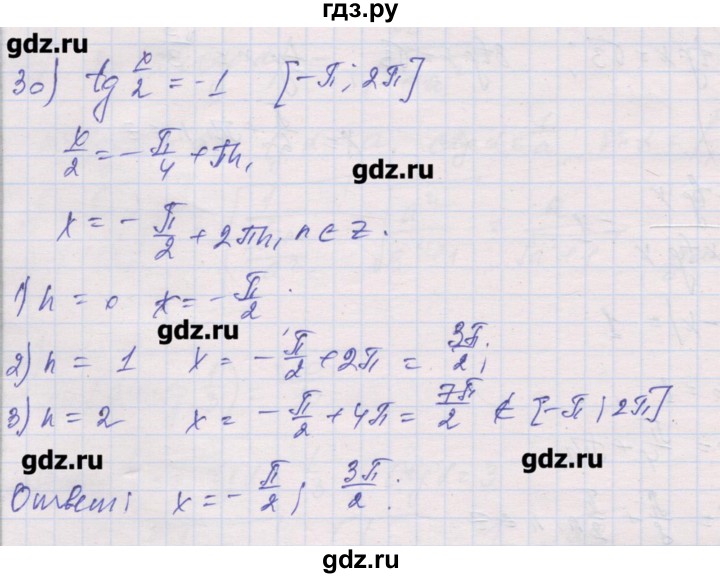 гдз.ру
gdz.ru
30) tg x/2 = -1 [-π; 2π]
x/2 = -π/4 + πn,
gdz.ru
x = -π/2 + 2πn, n ∈ z.
1) n = 0 x = -π/2.
gdz.ru
2) n = 1 x = -π/2 + 2π = 3π/2;
3) n = 2 x = -π/2 + 4π = 7π/2 ∉ [-π; 2π].
gdz.ru gdz.ru
Ответ: x = -π/2; 3π/2.
gdz.ru